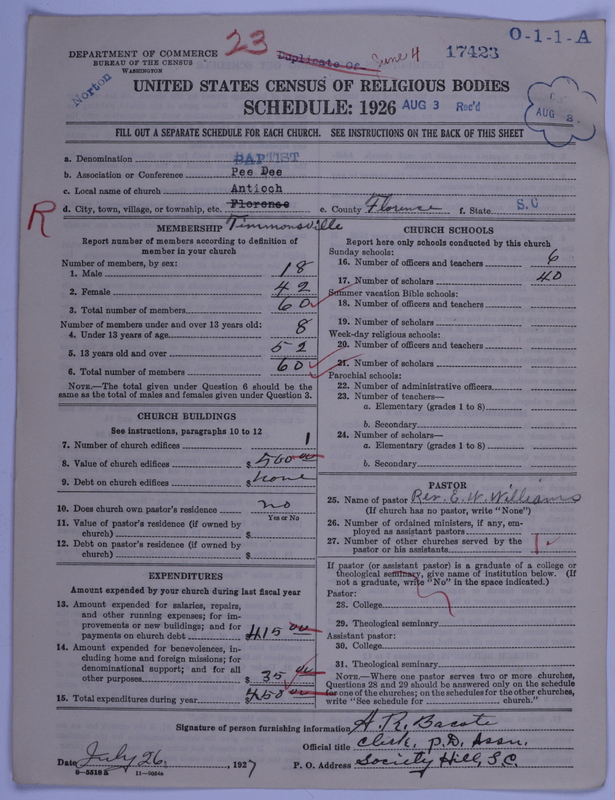 23
Duplicate Of June 4
17423
O-1-1-A
DEPARTMENT OF COMMERCE
BUREAU OF THE CENSUS
WASHINGTON
Norton
UNITED STATES CENSUS OF RELIGIOUS BODIES
SCHEDULE: 1926 AUG 3 Rec'd
AUG 3.
FILL OUT A SEPARATE SCHEDULE FOR EACH CHURCH. SEE INSTRUCTIONS ON THE BACK OF THIS SHEET
a. Denomination BAPTIST
b. Association or Conference Pee Dee
c. Local name of church Antioch
R
d. City, town, village, or township, etc. Florence e. County Florence f. State S.C
Timmonsville
MEMBERSHIP
Report number of members according to definition of
member in your church
Number of members, by sex:
1. Male 18
2. Female 42
3. Total number of members 60
Number of members under and over 13 years old:
4. Under 13 years of age 8
5. 13 years old and over 52
6. Total number of members 60
NOTE.—The total given under Question 6 should be the
same as the total of males and females given under Question 3.
CHURCH BUILDINGS
See instructions, paragraphs 10 to 12
7. Number of church edifices 1
8. Value of church edifices $ 500 00
9. Debt on church edifices $ none
10. Does church own pastor's residence? no
Yes or No
11. Value of pastor's residence (if owned by
church) $
12. Debt on pastor's residence (if owned by
church) $
EXPENDITURES
Amount expended by your church during last fiscal year
13. Amount expended for salaries, repairs,
and other running expenses; for im-
provements or new buildings; and for
payments on church debt $ 415 00
14. Amount expended for benevolences, in-
cluding home and foreign missions; for
denominational support; and for all
other purposes $ 35 00
15. Total expenditures during year $ 450 00
CHURCH SCHOOLS
Report here only schools conducted by this church
Sunday schools:
16. Number of officers and teachers 6
17. Number of scholars 40
Summer vacation Bible schools:
18. Number of officers and teachers
19. Number of scholars
Week-day religious schools:
20. Number of officers and teachers
21. Number of scholars
Parochial schools:
22. Number of administrative officers
23. Number of teachers—
a. Elementary (grades 1 to 8)
b. Secondary
24. Number of scholars—
a. Elementary (grades 1 to 8)
b. Secondary
PASTOR
25. Name of pastor Rev. E. W. Williams
(If church has no pastor, write "None")
26. Number of ordained ministers, if any, em-
ployed as assistant pastors
27. Number of other churches served by the
pastor or his assistants 1
If pastor (or assistant pastor) is a graduate of a college or
theological seminary, give name of institution below. (If
not a graduate, write "No" in the space indicated.)
Pastor:
28. College
29. Theological seminary
Assistant pastor:
30. College
31. Theological seminary
NOTE.—Where one pastor serves two or more churches,
Questions 28 and 29 should be answered only on the schedule
for one of the churches; on the schedules for the other churches,
write "See schedule for church."
Signature of person furnishing information A. R. Bacote
Official title Clerk, P.D. Assn.
Date July 26, 1927 P. O. Address Society Hill, S.C.
8-5518 A 11-9064a